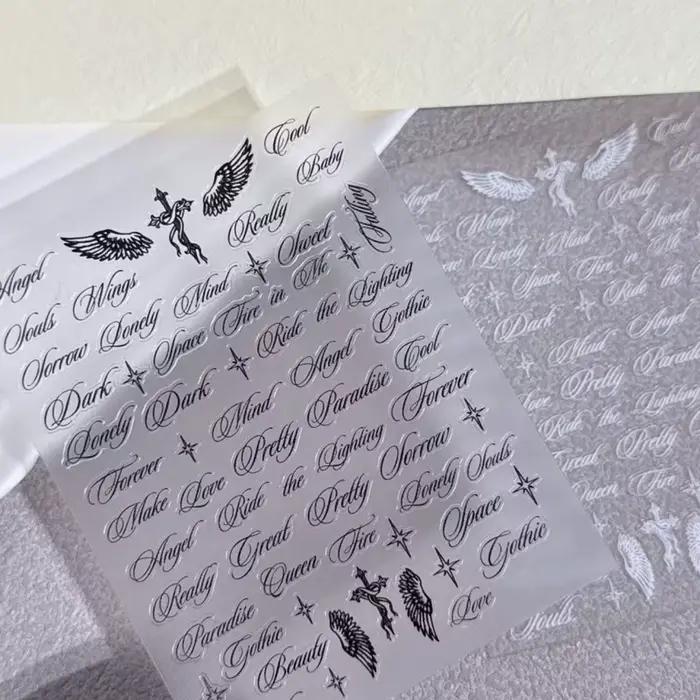 Cool
Baby
Really
Falling
Angel
Souls Wings
Sorrow Lonely Mind Sweet
Dark Space Fire in Me
Lonely Dark Ride the Lighting
Forever Mind Angel Gothic
Make Love Pretty Paradise Cool
Angel Ride the Lighting Forever
Really Great Pretty Sorrow
Paradise Queen Fire Lonely Souls
Gothic Space
Beauty Gothic
Love
Cool
Really
Angel
Wings
Sweet
Lonely Mind
Space Fire in Me
Dark
Mind Angel
Love Pretty Paradise
Ride the Lighting
Great Pretty
Queen Fire
Souls